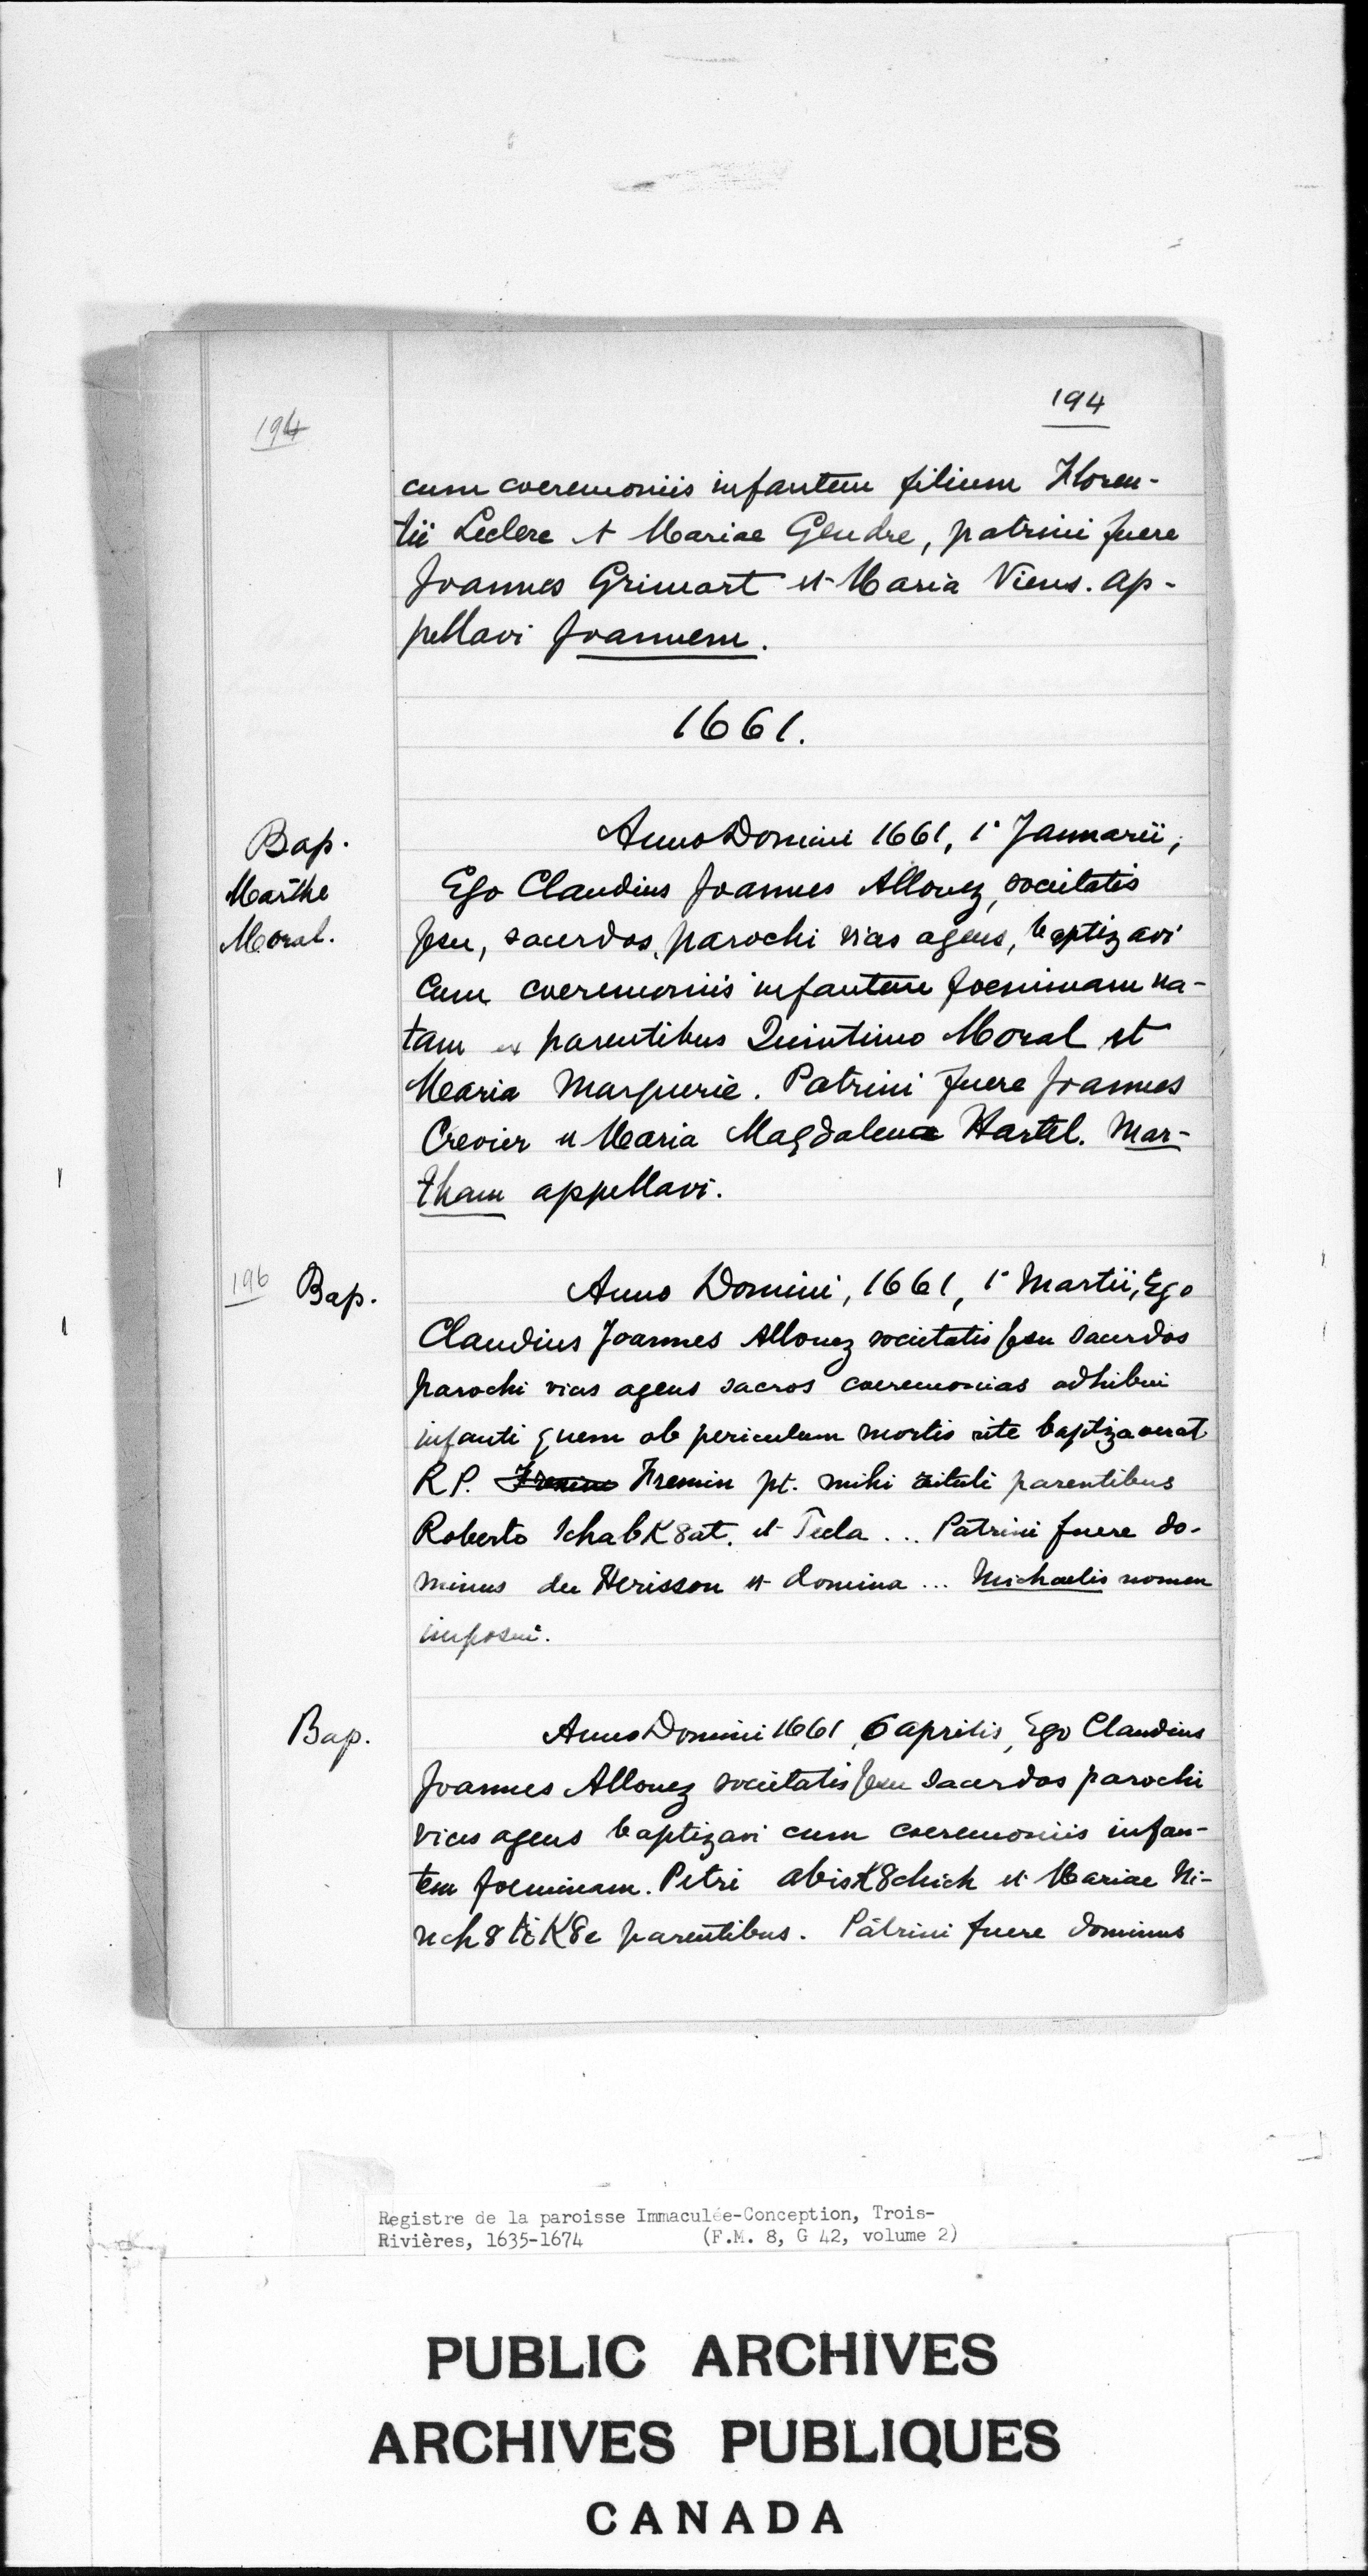 194
194
cum coeremoniis infantem filium Floren-
tii Leclerc et Mariae Gendre, patrini fuere
Joannes Grimart et Maria Viens. ap-
pellavi Joannem.
1661.
Bap.
Marthe
Moral.
Anno Domini 1661, 1° Januarii,
Ego Claudius Joannes Allouez, societatis
Jesu, sacerdos, parochi vices agens, baptizavi
Cum coeremoniis infantem foeminam na-
tam ex parentibus Quintino Moral et
Maria Marguerie. Patrini fuere Joannes
Crevier et Maria Magdalena Hartel. Mar-
tham appellavi.
196
Bap.
Anno Domini, 1661, 1° Martii, Ego
Claudius Joannes Allouez societatis Jesu sacerdos
parochi vices agens sacros coeremonias adhibui
infanti quem ob periculum mortis rite baptizaverat
R P. Fremin Fremin pt. mihi parentibus
Roberto IchabK8at. et Tecla ... Patrini fuere do-
minus du Herisson et domina ... Michaelis nomen
imposui.
Bap.
Anno Domini 1661, 6 aprilis, Ego Claudius
Joannes Allouez societatis Jesu sacerdos parochi
vices agens baptizavi cum coeremoniis infan-
tem foeminam. Petri abisK8chich et Mariae Ni-
parentibus. Patrini fuere dominus
Registre de la paroisse Immaculée-Conception, Trois-
Rivières, 1635-1674 (F.M. 8, G 42, volume 2)
PUBLIC ARCHIVES
ARCHIVES PUBLIQUES
CANADA